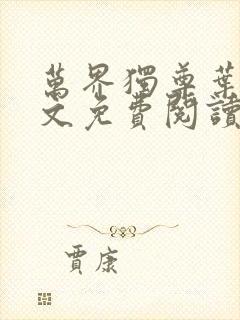 萬界獨尊葉
文免費閱讀
賈康